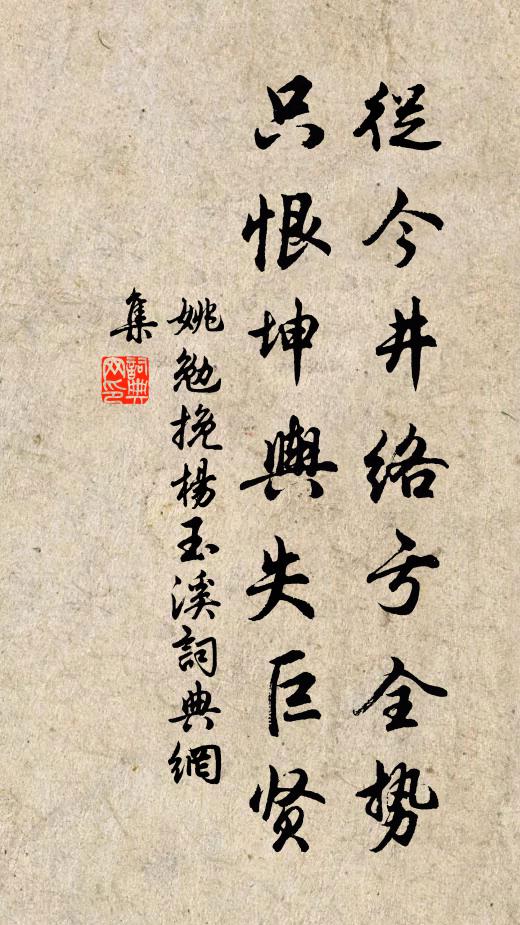 從今井络亏全势
只恨坤輿失巨贤
姚勉挽楊玉溪詞典網
集
詞典
网印